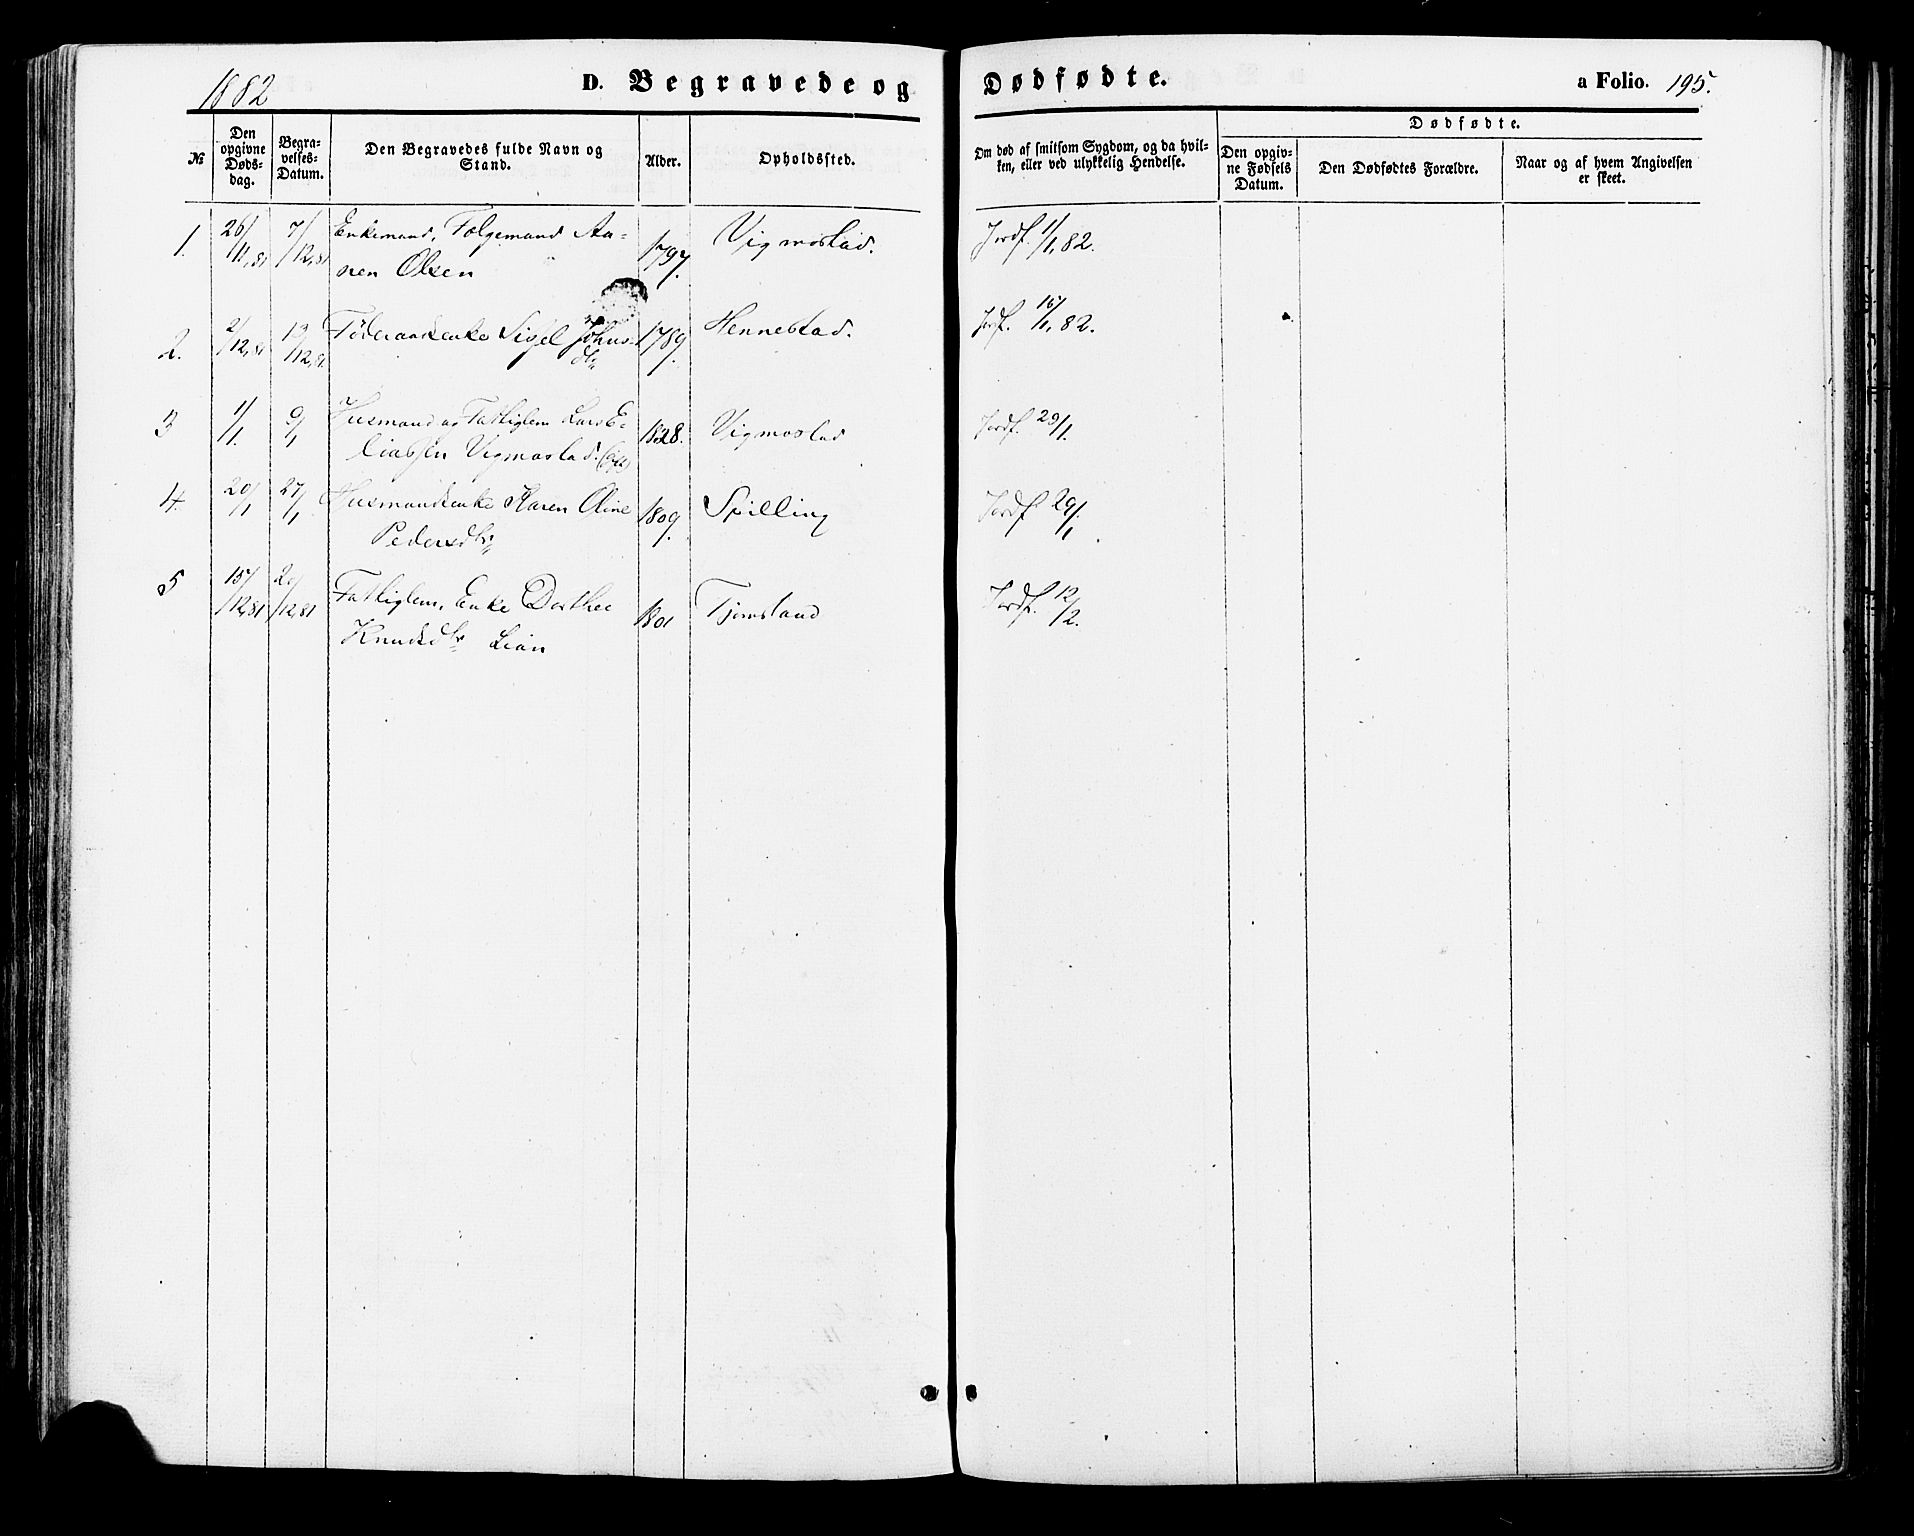 1882 D. Begravede og Dødfødte. a Folio. 195.
№
Den opgivne Døds-dag.
Begra-velses-Datum.
Den Begravedes fulde Navn og Stand.
Alder.
Opholdssted.
Om død af smitsom Sygdom, og da hvil-ken, eller ved ulykkelig Hendelse.
Dødfødte.
Den opgiv-ne Fødsels Datum.
Den Dødfødtes Forældre.
Naar og af hvem Angivelsen er skeet.
1. 26/11,81 7/12,81 Enkemand, Følgemand Aa- 1797. Vigmostad. Jordf. 1/1,82.
nen Olsen
2. 2/12,81 13/12,81 Føderaadsenke Sigel Johns- 1789. Hennestad. Jordf. 15/1,82.
dtr
3 1/1. 9/1 Husmand og Fattiglem Lars E- 1828. Vigmostad Jordf. 29/1.
liassen Vigmostad. (gift)
4. 20/1 27/1 Husmandsenke Karen Oline 1809. Spilling Jordf 29/1.
Pedersdtr
5 15/12,81 20/12,81 Fattiglem, Enke Dorthee 1801 Tjomsland Jordf. 12/2.
Knudsdtr Lian